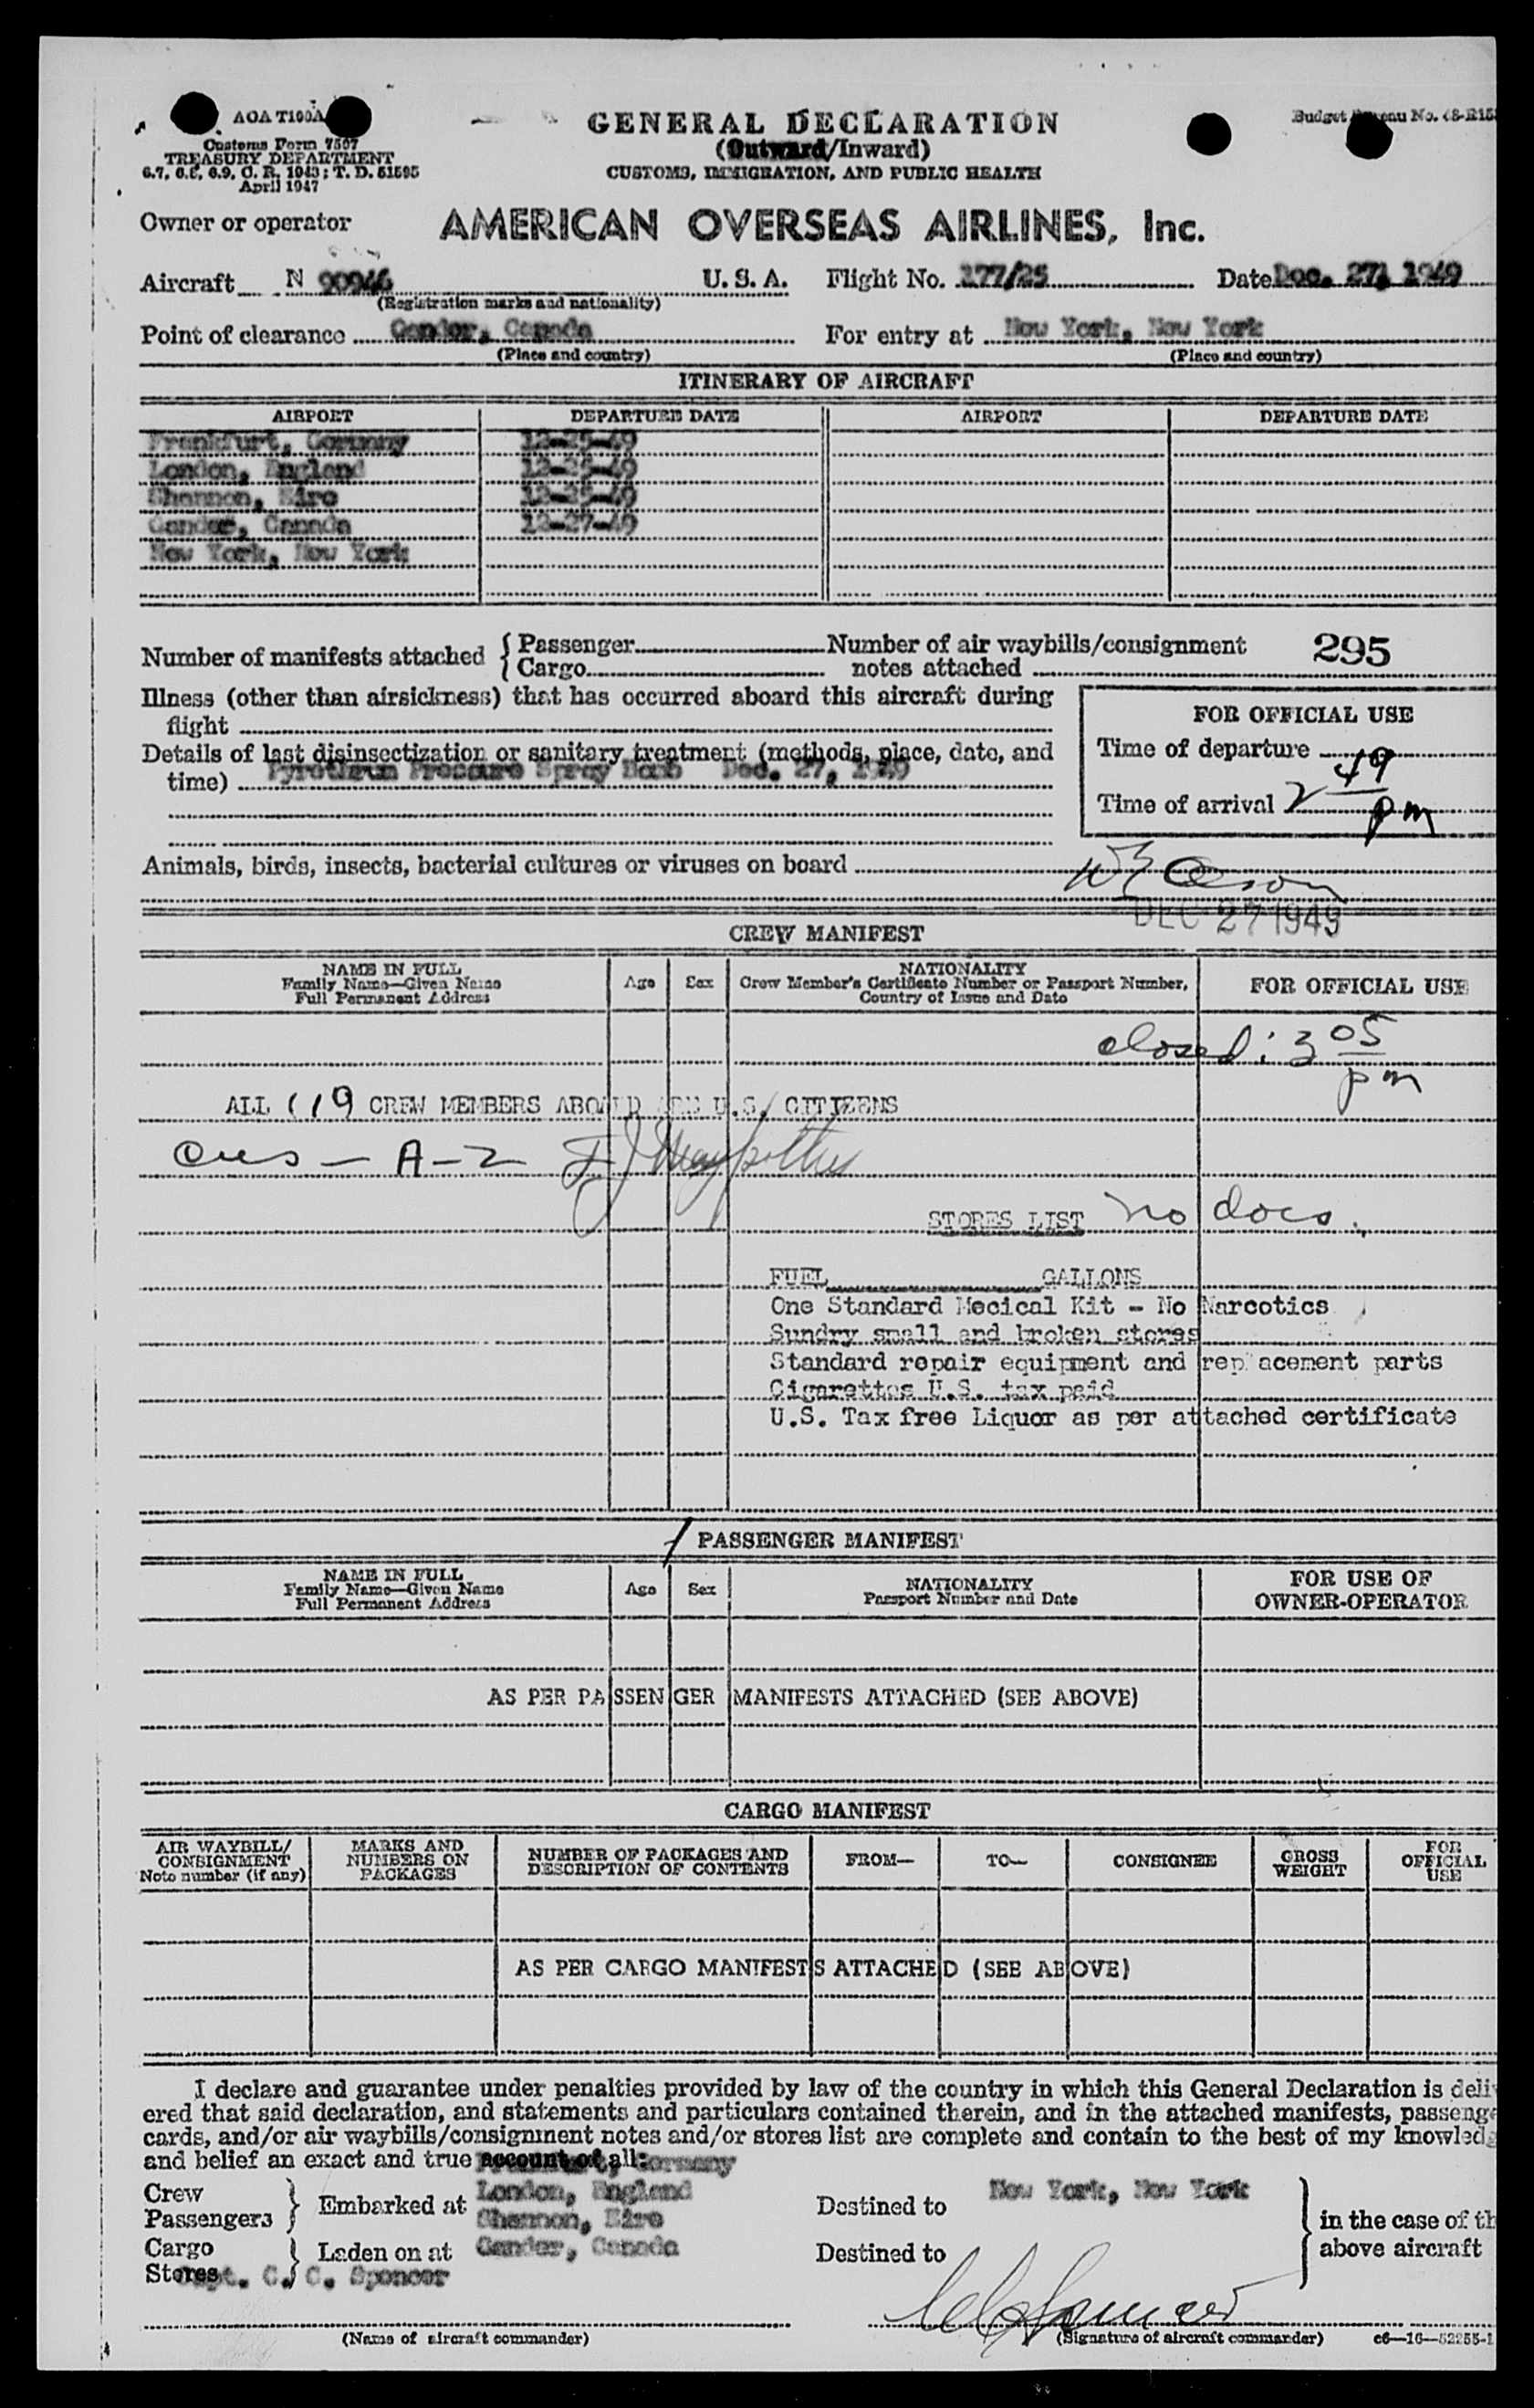 AOA T100A
Customs Form 7507
TREASURY DEPARTMENT
6.7, 6.8, 6.9, C. R. 1943; T. D. 51595
April 1947
GENERAL DECLARATION
(Outward/Inward)
CUSTOMS, IMMIGRATION, AND PUBLIC HEALTH
Budget Bureau No. 48-R15
Owner or operator AMERICAN OVERSEAS AIRLINES, Inc.
Aircraft N 90946 U. S. A. Flight No. 177/25 Date Dec. 27, 1949
(Registration marks and nationality)
Point of clearance Gander, Canada For entry at New York, New York
(Place and country) (Place and country)
ITINERARY OF AIRCRAFT
AIRPORT DEPARTURE DATE AIRPORT DEPARTURE DATE
Frankfurt, Germany 12-25-49
London, England 12-25-49
Shannon, Eire 12-25-49
Gander, Canada 12-27-49
New York, New York
Number of manifests attached { Passenger Number of air waybills/consignment 295
Cargo notes attached
Illness (other than airsickness) that has occurred aboard this aircraft during
flight
FOR OFFICIAL USE
Time of departure
Details of last disinsectization or sanitary treatment (methods, place, date, and
time) Pyrethrum Pressure Spray Bomb Dec. 27, 1949
Time of arrival 2 49 pm
Animals, birds, insects, bacterial cultures or viruses on board
DEC 27 1949
CREW MANIFEST
NAME IN FULL
Family Name—Given Name
Full Permanent Address
Age Sex
NATIONALITY
Crew Member's Certificate Number or Passport Number,
Country of Issue and Date
FOR OFFICIAL USE
closed: 3 05 pm
ALL (19 CREW MEMBERS ABOARD ARE U.S. CITIZENS
A-2
STORES LIST no docs.
FUEL GALLONS
One Standard Mecical Kit - No Narcotics
Sundry small and broken stores
Standard repair equipment and replacement parts
Cigarettes U.S. tax paid
U.S. Tax free Liquor as per attached certificate
PASSENGER MANIFEST
NAME IN FULL
Family Name—Given Name
Full Permanent Address
Age Sex
NATIONALITY
Passport Number and Date
FOR USE OF
OWNER-OPERATOR
AS PER PASSENGER MANIFESTS ATTACHED (SEE ABOVE)
CARGO MANIFEST
AIR WAYBILL/
CONSIGNMENT
Note number (if any)
MARKS AND
NUMBERS ON
PACKAGES
NUMBER OF PACKAGES AND
DESCRIPTION OF CONTENTS
FROM— TO— CONSIGNEE
GROSS
WEIGHT
FOR
OFFICIAL
USE
AS PER CARGO MANIFESTS ATTACHED (SEE ABOVE)
I declare and guarantee under penalties provided by law of the country in which this General Declaration is deliv
ered that said declaration, and statements and particulars contained therein, and in the attached manifests, passenge
cards, and/or air waybills/consignment notes and/or stores list are complete and contain to the best of my knowledg
and belief an exact and true account of all: Germany
Crew
Passengers } Embarked at London, England
Shannon, Eire
Destined to New York, New York
Cargo
Stores } Laden on at Gander, Canada
Destined to
} in the case of th
above aircraft
Capt. C. C. Spencer
C C Spencer
(Name of aircraft commander) (Signature of aircraft commander) c6—16—52255-1